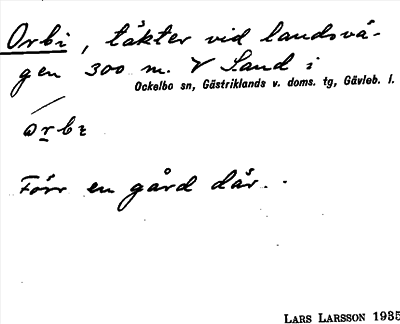 Orbi, täkter vid landsvä-
gen 300 m. V Sand i
Ockelbo sn, Gästriklands v. doms. tg, Gävleb. l.
órbi
Förr en gård där.
LARS LARSSON 1935